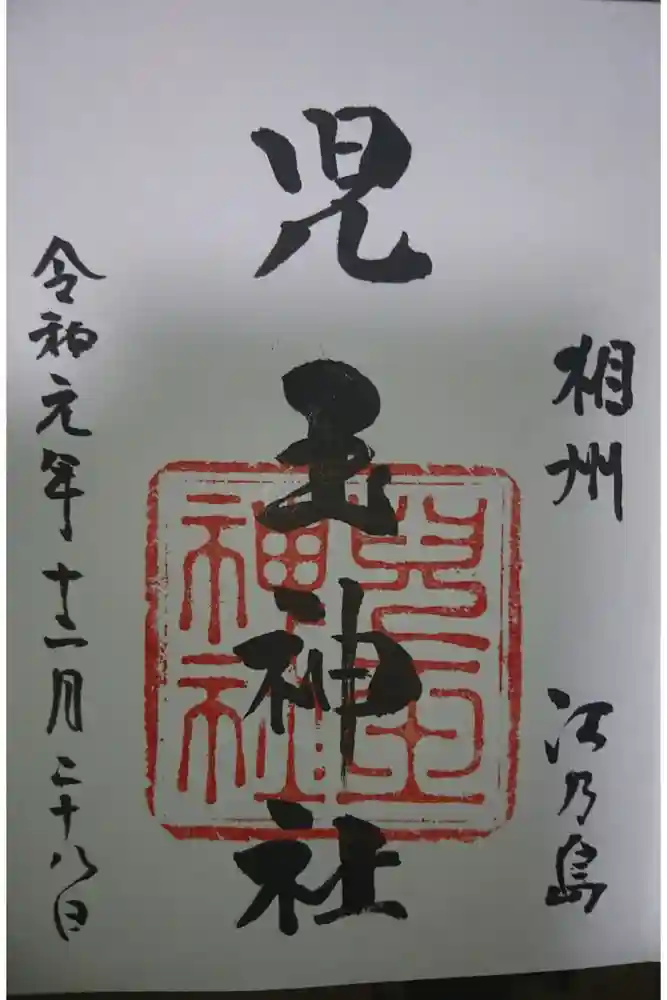 相州 江乃島
児玉神社
令和元年十二月二十八日
児玉
神社